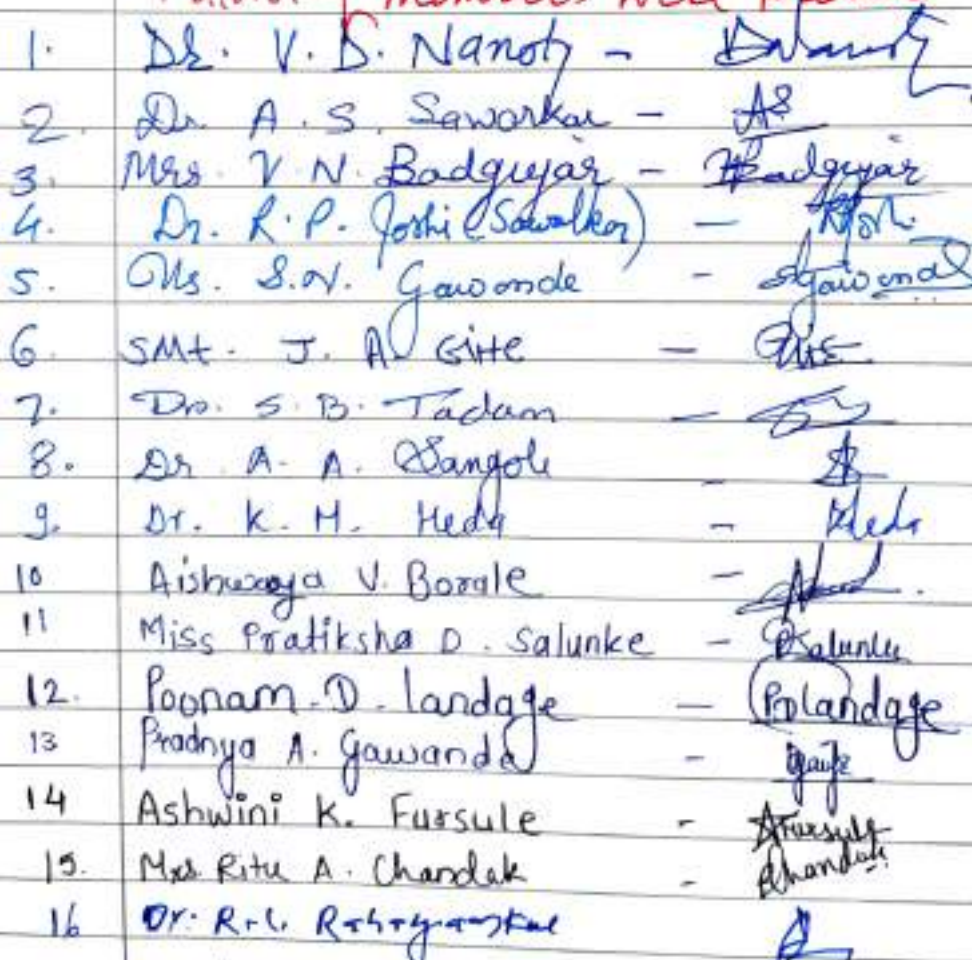 members were
1. Dr. V. D. Nanoty -
2. Dr. A. S. Sawarkar - AS
3. Mrs. V. N. Badgujar - Badgujar
4. Dr. R. P. Joshi (Sawalkar) -
5. Ms. S. N. Gawande - Gawande
6. SMt. J. A. Gitte - Gitte
7. Dr. S. B. Tadam -
8. Dr A. A. Sangole -
9. Dr. K. H. Heda - Heda
10 Aishwarya V. Borale -
11 Miss Pratiksha D. Salunke - Salunke
12. Poonam. D. landage - PDlandage
13 Pradnya A. Gawande -
14 Ashwini K. Fursule - AFursule
15. Mrs. Ritu A. Chandak - Chandak
16 Dr. R. L.